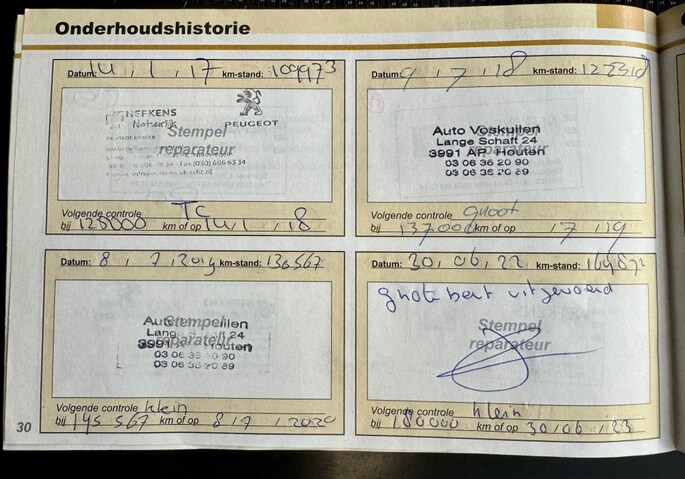 Onderhoudshistorie
Datum: 14 , 1 , 17 km-stand: 109973
NEFKENS
Natuurlijk
PEUGEOT
Stempel
reparateur
Volgende controle TC
bij 125000 km of op 14 / 1 / 18
Datum: 9 , 7 , 18 km-stand:
Auto Voskuilen
Lange Schaft 24
3991 AP Houten
03 06 36 20 90
03 06 35 20 89
Stempel
reparateur
Volgende controle groot
bij 137000 km of op / 7 / 19
Datum: 8 , 7 , 2019 km-stand: 136567
Stempel
reparateur
3991 Houten
Volgende controle klein
bij 145 567 km of op 8 / 7 / 2020
Datum: 30, 06, 22 km-stand:
grote beurt uitgevoerd
Stempel
reparateur
Volgende controle klein
bij 180000 km of op 30 / 06 / 23
30